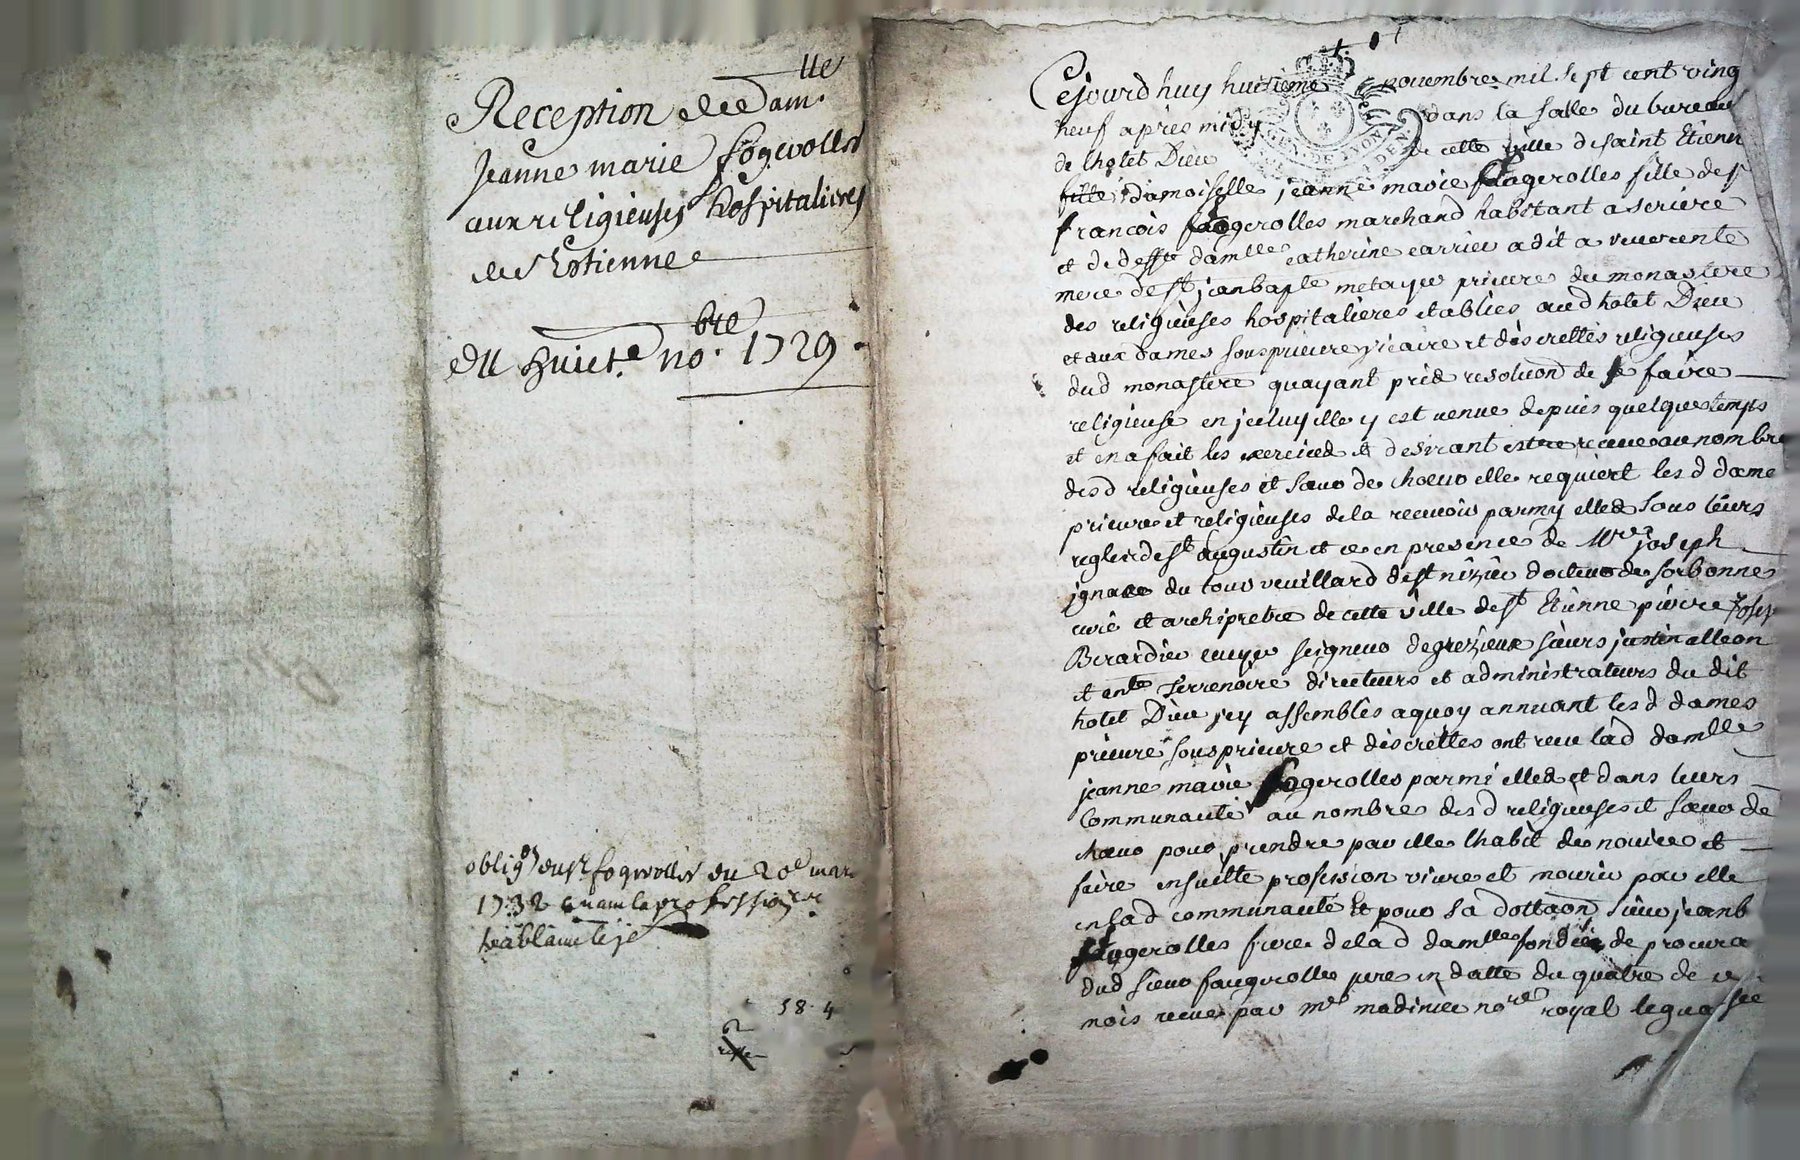 Reception de Dam.lle
Jeanne marie fogerolles
aux religieuses hospitalieres
de St Estienne
du huict.e no.bre 1729.
oblig.on du Sr fogerolles du 20e mars
1732
58. 4
Cejourd huy huitieme novembre mil sept cent ving
neuf apres midy dans la salle du bureau
de lhotel Dieu de cette ville de saint Etienn
fille damoiselle jeanne marie faugerolles fille de sr
francois faugerolles marchand habitant a seriere
et de deffte damlle catherine carrier a dit a reverente
mere de st jean baptte metayer prieure du monastere
des religieuses hospitalieres etablies aud hotel Dieu
et aux dames sousprieure vicaire et discrettes religieuses
dud monastere quayant pris resolution de se faire
religieuse en jceluy elle y est venue depuis quelque temps
et en a fait les exercices et desirant estre receue au nombre
desd religieuses et soeur de choeur elle requiert les d dame
prieure et religieuses de la recevoir parmy elles sous leurs
regles de st augustin et ce en presence de Mre joseph
jgnace du tour veuillard de st nizier docteur de sorbonne
curé et archipretre de cette ville de st Etienne pierre Josep
Berardier ecuyer seigneur de grezieux sieurs justin alleon
et ente terrenoire directeurs et administrateurs du dit
hotel Dieu jcy assemblés a quoy annuant les d dames
prieure sousprieure et discrettes ont receu lad damlle
jeanne marie fogerolles parmi elles et dans leurs
Communauté au nombre desd religieuses et soeur de
choeur pour prendre par elle lhabit de novice et
faire ensuitte profession vivre et mourir par elle
en lad communauté Et pour sa dottaon sieur jean b
faugerolles frere de la d damlle fondé de procura
dud sieur faugerolles pere en datte du quatre de ce
mois receue par me madinier nore royal